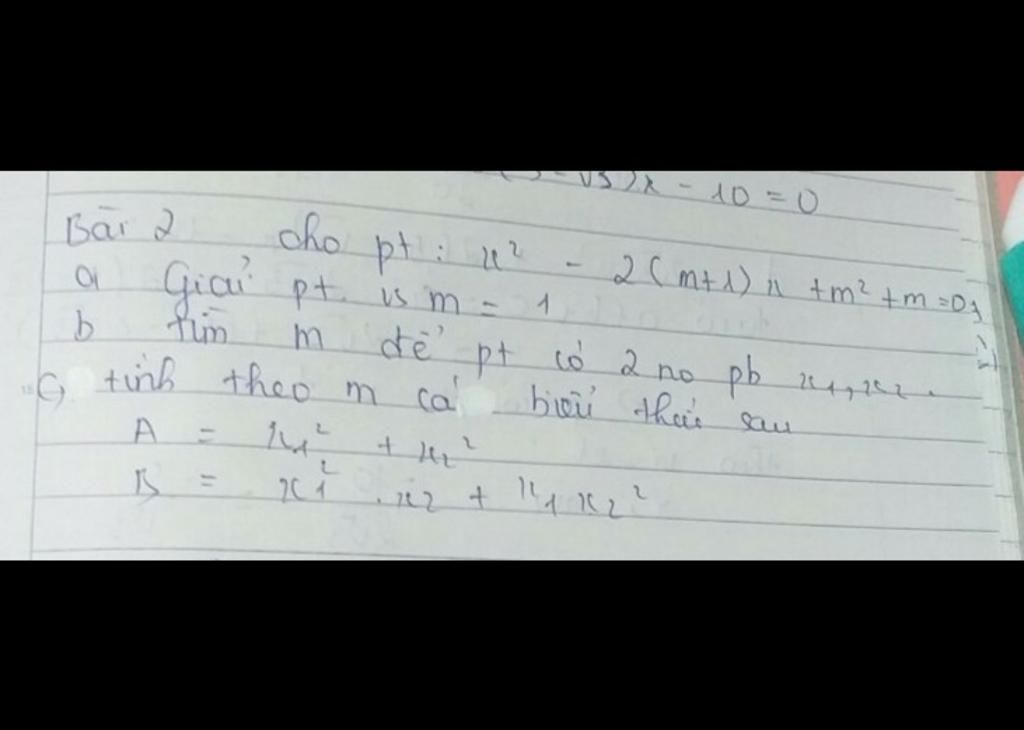 - √3)x - 10 = 0
Bài 2 cho pt : x² - 2(m+1)x + m² + m = 0
a Giải pt vs m = 1
b tìm m để pt có 2 no pb x₁, x₂.
c, tính theo m cá biểu thức sau
A = x₁² + x₂²
B = x₁² . x₂ + x₁ x₂²